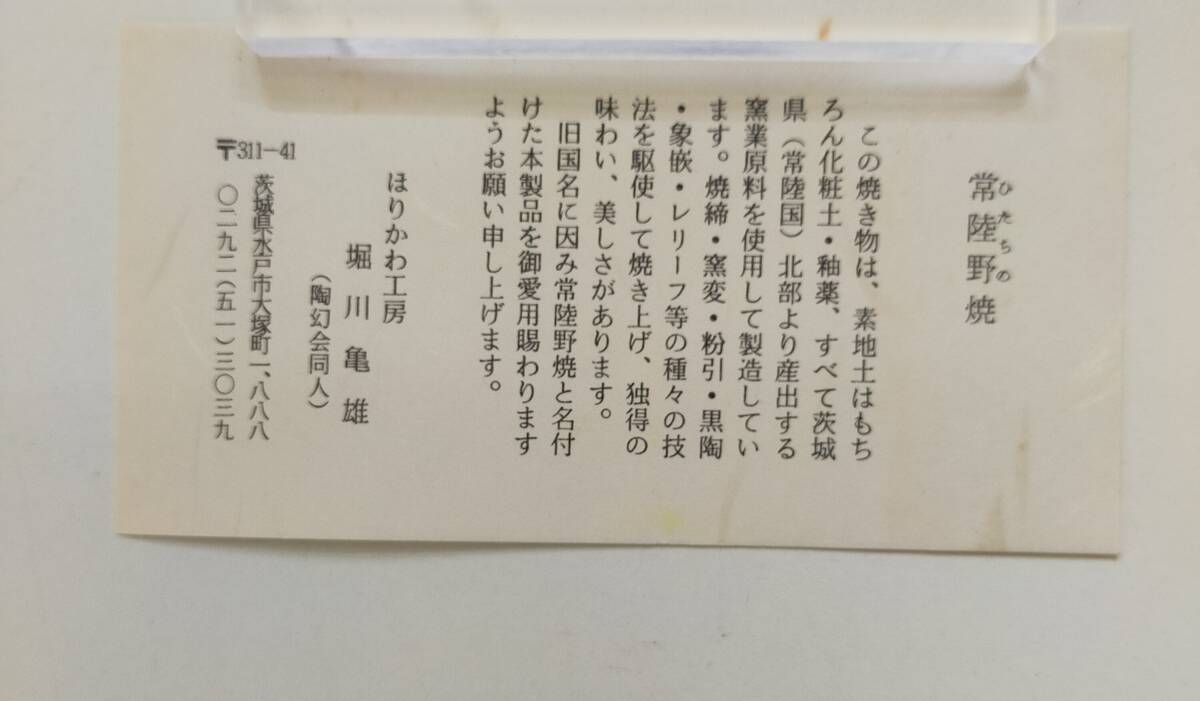 常陸野焼
ひたちの
この焼き物は、素地土はもち
ろん化粧土・釉薬、すべて茨城
県（常陸国）北部より産出する
窯業原料を使用して製造してい
ます。焼締・窯変・粉引・黒陶
・象嵌・レリーフ等の種々の技
法を駆使して焼き上げ、独得の
味わい、美しさがあります。
旧国名に因み常陸野焼と名付
けた本製品を御愛用賜わります
ようお願い申し上げます。
ほりかわ工房
堀川亀雄
（陶幻会同人）
〒311−41
茨城県水戸市大塚町一、八八八
〇二九二（五一）三〇三九